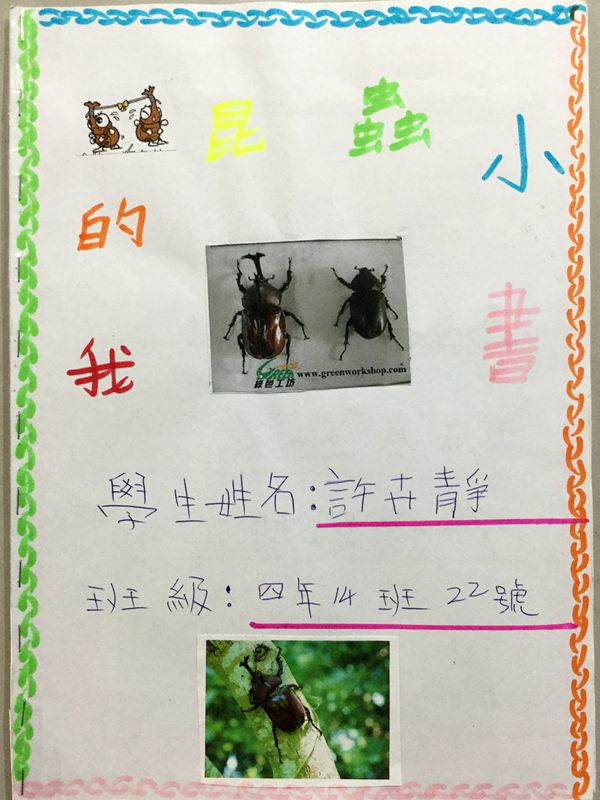 我的昆蟲小書
GREEN
綠色工坊 www.greenworkshop.com
學生姓名:許卉靜
班級:四年14班22號